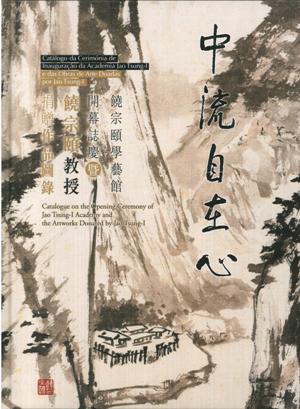 Catálogo da Cerimónia de
Inauguração da Academia Jao Tsung-I
e das Obras de Arte Doadas
por Jao Tsung-I
中流自在心
饒宗頤學藝館
開幕誌慶暨
饒宗頤教授
捐贈作品圖錄
Catalogue on the Opening Ceremony of
Jao Tsung-I Academy and
the Artworks Donated by Jao Tsung-I